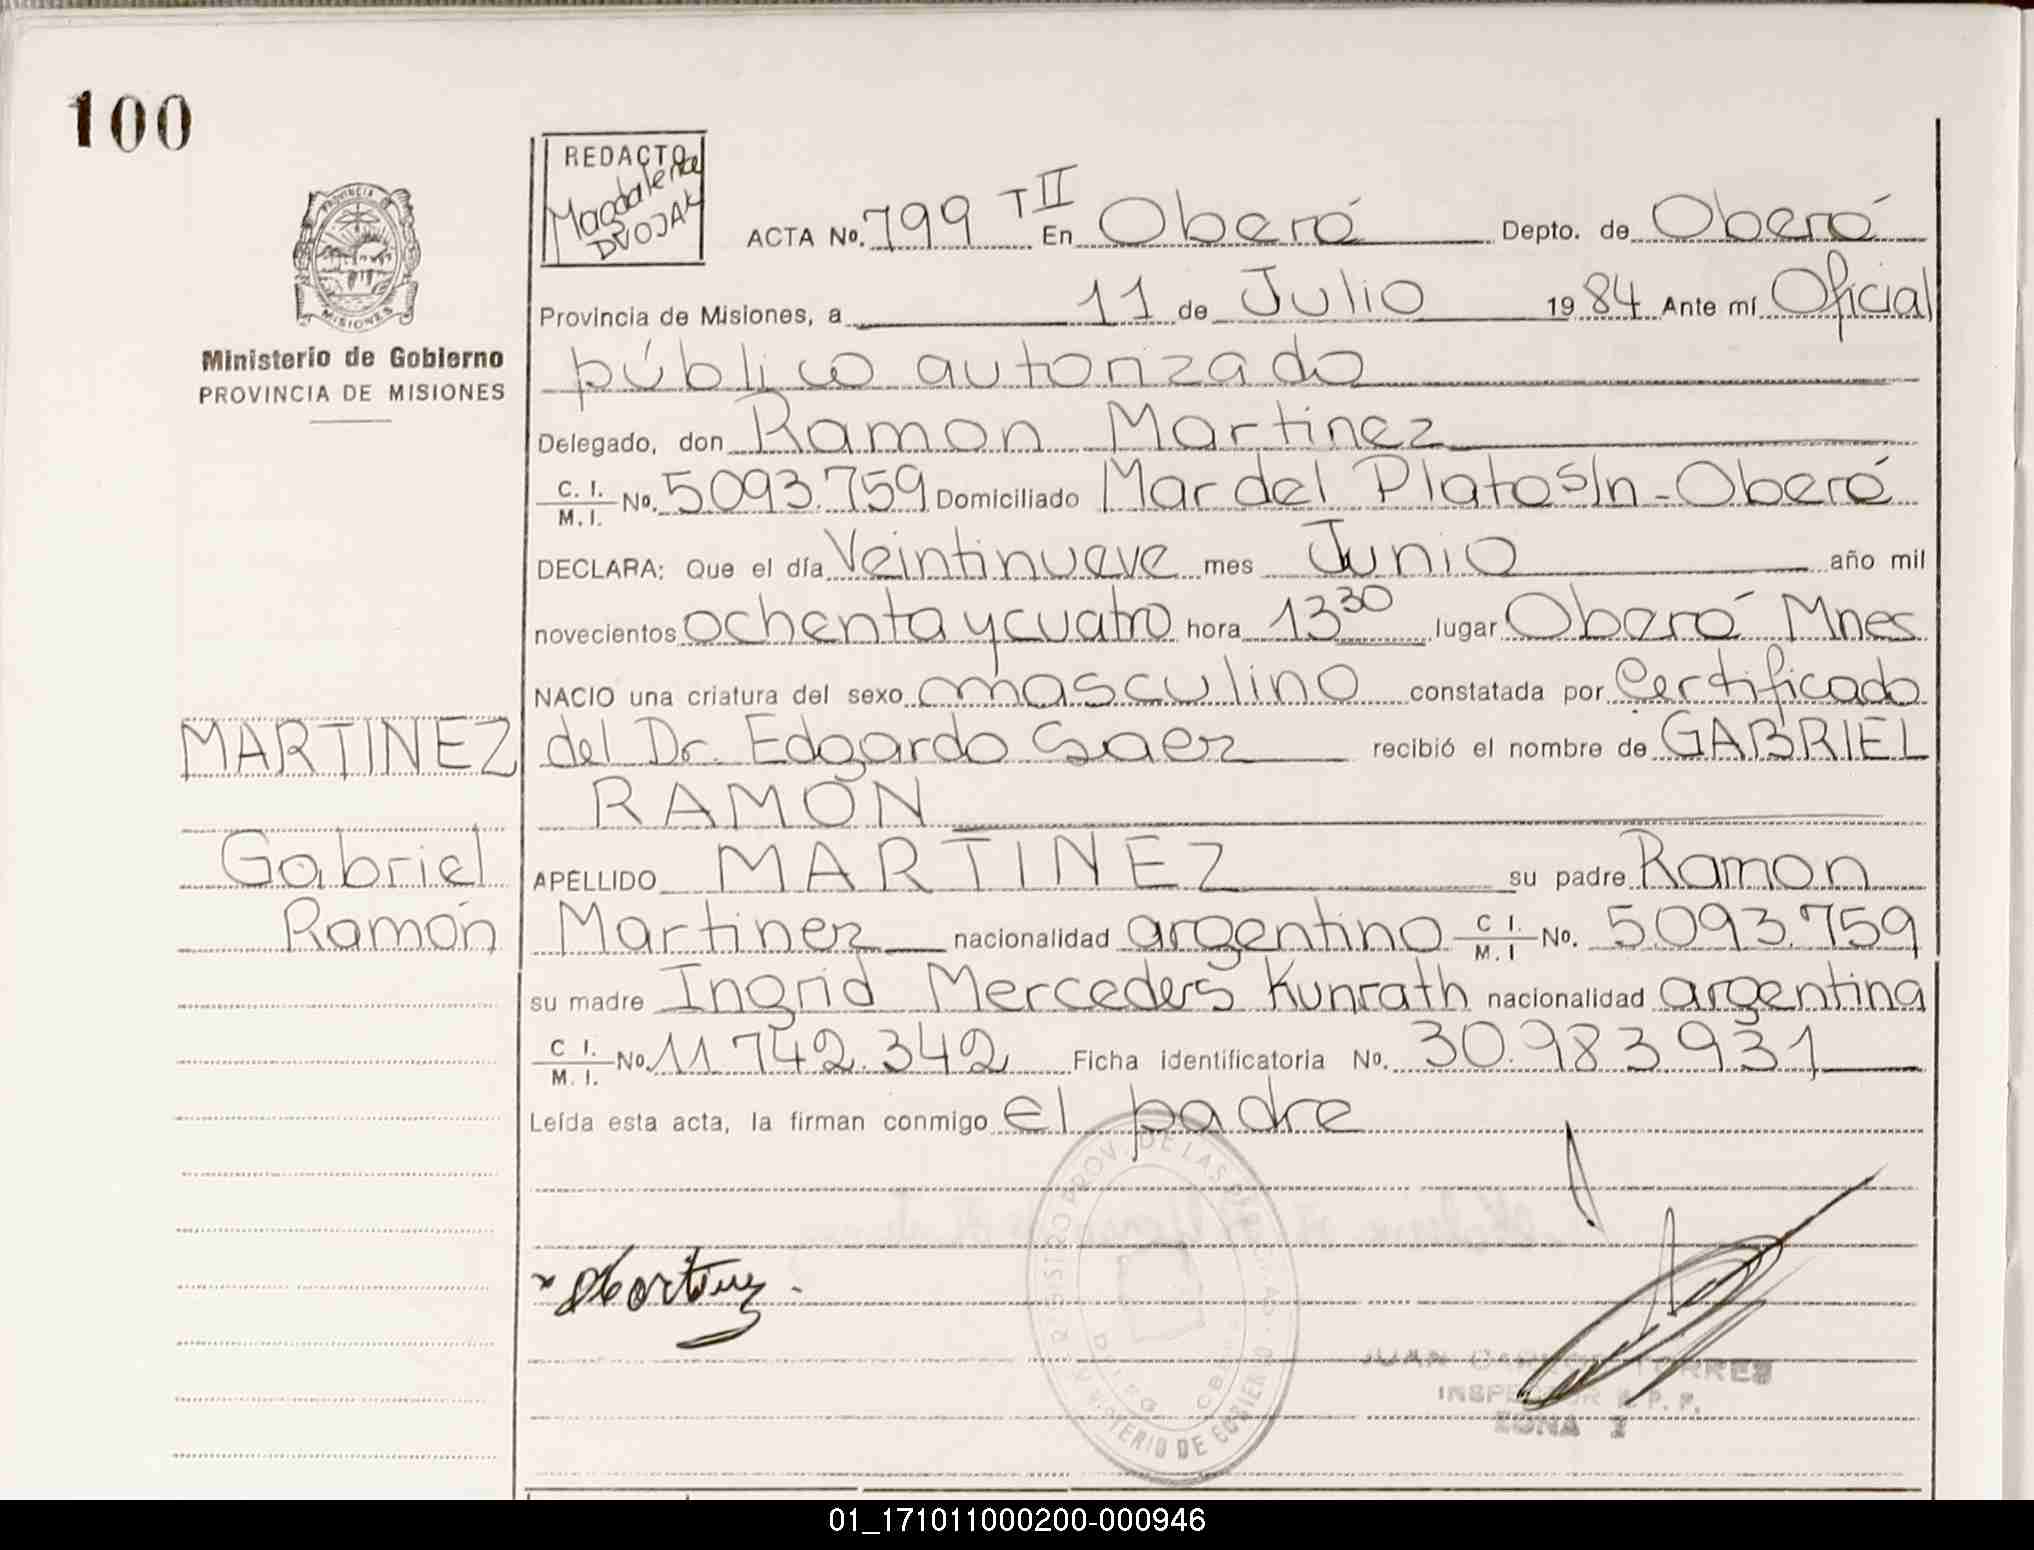 100
PROVINCIA DE
MISIONES
Ministerio de Gobierno
PROVINCIA DE MISIONES
REDACTO
Magdalena
DVOJAK
ACTA No. 799 T II En Oberá Depto. de Oberá
Provincia de Misiones, a 11 de Julio 1984 Ante mí Oficial
público autorizado
Delegado, don Ramon Martinez
C. I. M. I. No. 5093.759 Domiciliado Mar del Plata s/n - Oberá
DECLARA: Que el día Veintinueve mes Junio año mil
novecientos ochenta y cuatro hora 13 30 lugar Oberá Mnes
NACIO una criatura del sexo masculino constatada por Certificado
MARTINEZ del Dr. Edgardo Saez recibió el nombre de GABRIEL
RAMÓN
Gabriel APELLIDO MARTINEZ su padre Ramon
Ramón Martinez nacionalidad argentino C I. M. I No. 5.093.759
su madre Ingrid Mercedes Kunrath nacionalidad argentina
C I. M. I. No. 11.742.342 Ficha identificatoria No. 30.983.931
Leída esta acta, la firman conmigo el padre
Martinez
PROV. DE LAS
MINISTERIO DE GOBIERNO
JUAN TORRES
INSPECTOR R. P. P.
ZONA I
01_171011000200-000946